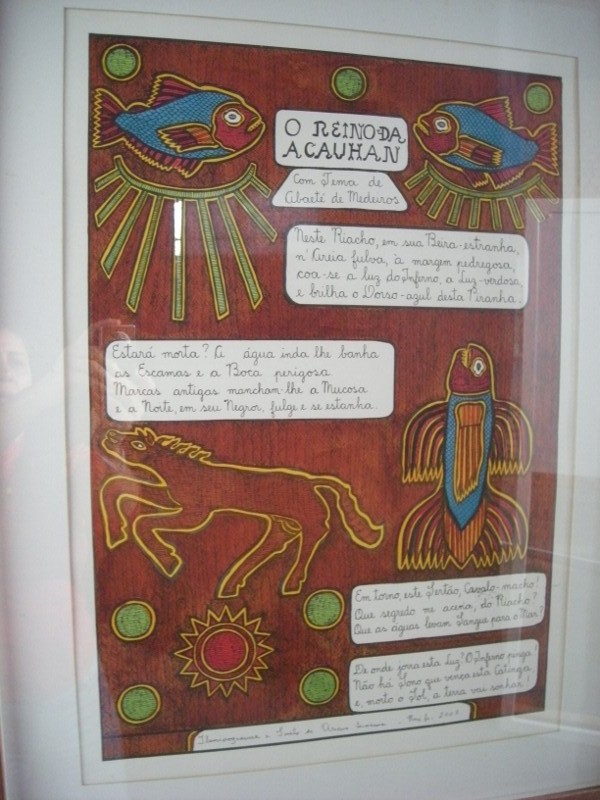 O REINO DA
ACAUHAN
Com Tema de
Abaeté de Medeiros
Neste Riacho, em sua Beira-estranha,
n' Areia fulva, à margem pedregosa,
coa-se a luz do Inferno, a Luz-verdosa,
e brilha o Dorso-azul desta Piranha.
Estará morta? A água inda lhe banha
as Escamas e a Boca perigosa.
Marcas antigas mancham-lhe a Mucosa
e a Morte, em seu Negror, fulge e se estanha.
Em torno, este Sertão, Cavalo-macho!
Que segredo me acena, do Riacho?
Que as águas levam Sangue para o Mar?
De onde jorra esta Luz? O Inferno pinga!
Não há Sono que vença esta Catinga,
e, morto o Sol, a terra vai sonhar!
Iluminogravura e Texto de